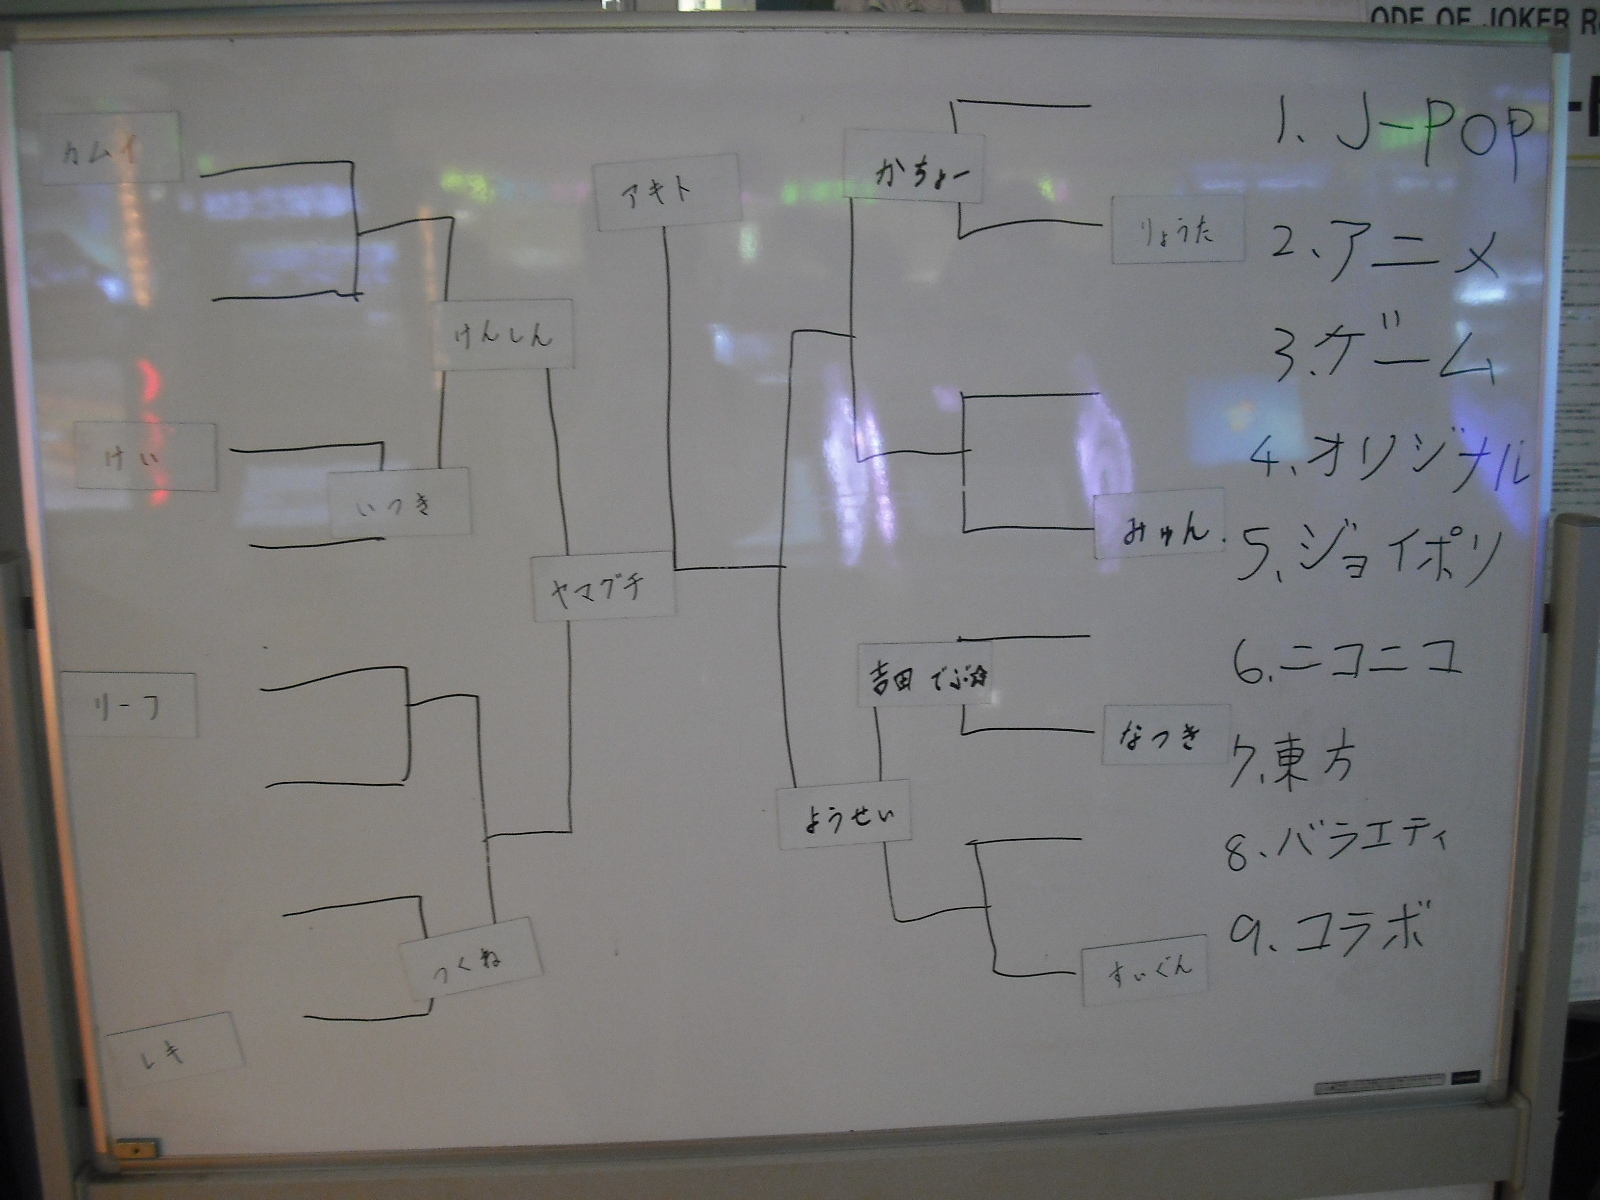 ODE OF JOKER R
カムイ
けい
リーフ
レキ
いつき
つくね
けんしん
ヤマグチ
アキト
かちょー
吉田 でぶ☆
ようせい
りょうた
みゅん.
なつき
すいぐん
1. J-POP
2、アニメ
3.ゲーム
4、オリジナル
5、ジョイポリ
6.ニコニコ
7.東方
8.バラエティ
9、コラボ